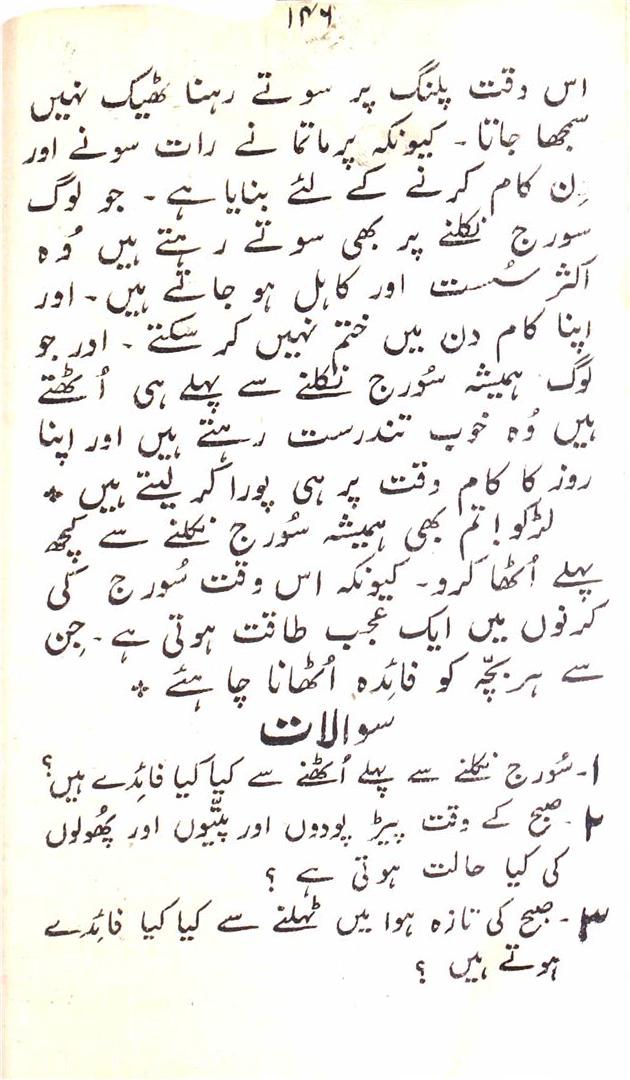 ۱۴۶
اس وقت پلنگ پر سوتے رہنا ٹھیک نہیں
سمجھا جاتا۔ کیونکہ پرماتما نے رات سونے اور
دِن کام کرنے کے لئے بنایا ہے۔ جو لوگ
سورج نکلنے پر بھی سوتے رہتے ہیں وُہ
اکثر سُست اور کاہل ہو جاتے ہیں۔ اور
اپنا کام دن میں ختم نہیں کر سکتے۔ اور جو
لوگ ہمیشہ سُورج نکلنے سے پہلے ہی اُٹھتے
ہیں وُہ خوب تندرست رہتے ہیں اور اپنا
روز کا کام وقت پر ہی پورا کر لیتے ہیں ٭
لڑکو! تم بھی ہمیشہ سُورج نکلنے سے کچھ
پہلے اُٹھا کرو۔ کیونکہ اس وقت سُورج کی
کرنوں میں ایک عجب طاقت ہوتی ہے۔ جِن
سے ہر بچّہ کو فائدہ اُٹھانا چاہئے ٭
سوالات
۱۔ سُورج نکلنے سے پہلے اُٹھنے سے کیا کیا فائِدے ہیں؟
۲۔ صبح کے وقت پیڑ پودوں اور پتّیوں اور پھُولوں
کی کیا حالت ہوتی ہے ؟
۳۔ صبح کی تازہ ہوا میں ٹہلنے سے کیا کیا فائِدے
ہوتے ہیں ؟